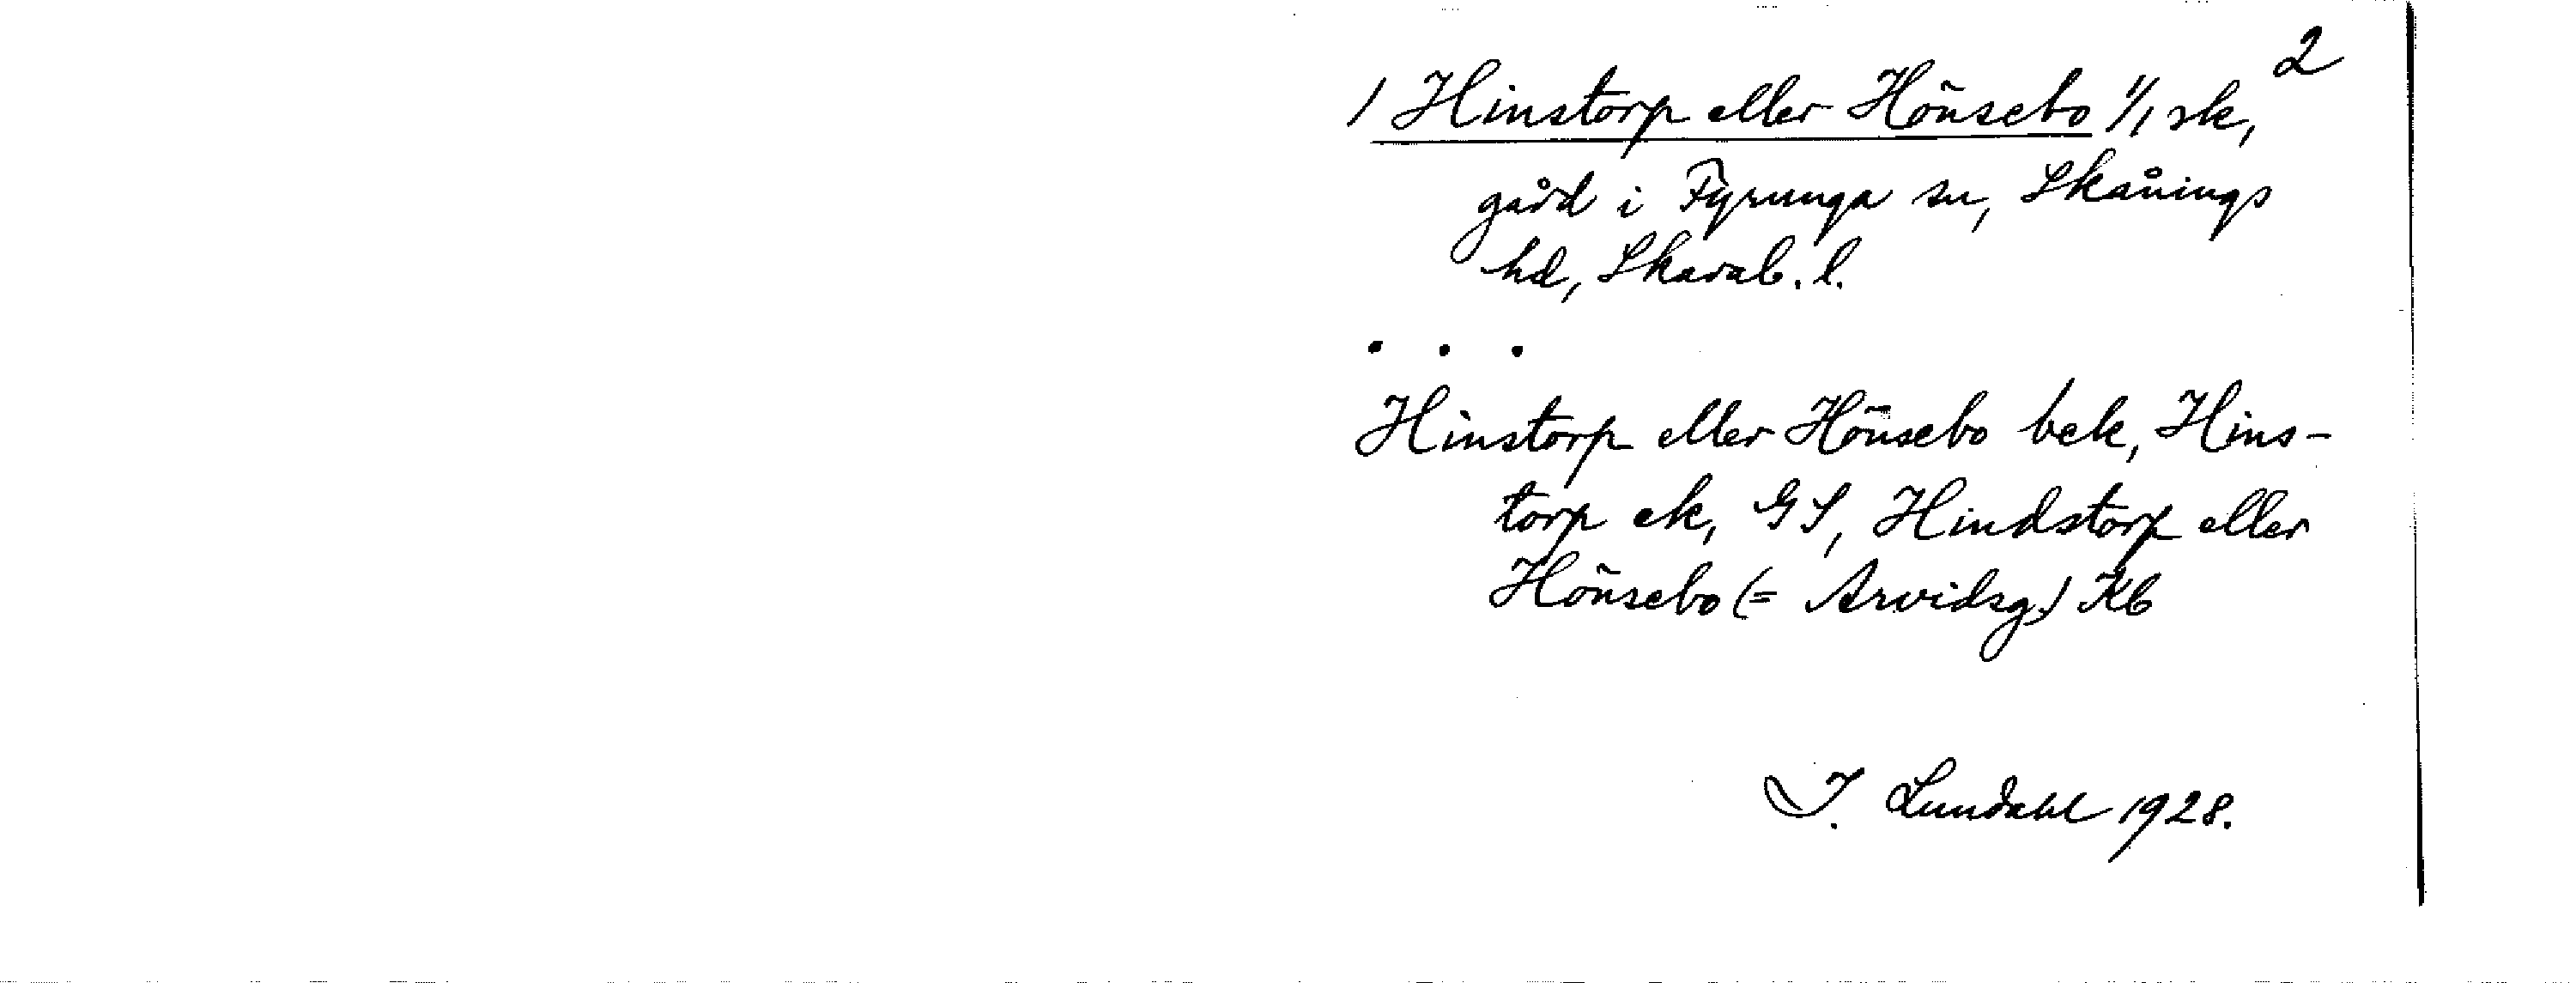 2
/ Hinstorp eller Hönsebo 1/1 sk,
gård i Fyrunga sn, Skånings
hd, Skarab. l.
. . .
Hinstorp eller Hönsebo bek, Hins-
torp ek, GS, Hindstorp eller
Hönsebo (= Arvidsg.) Kb
I. Lundahl 1928.